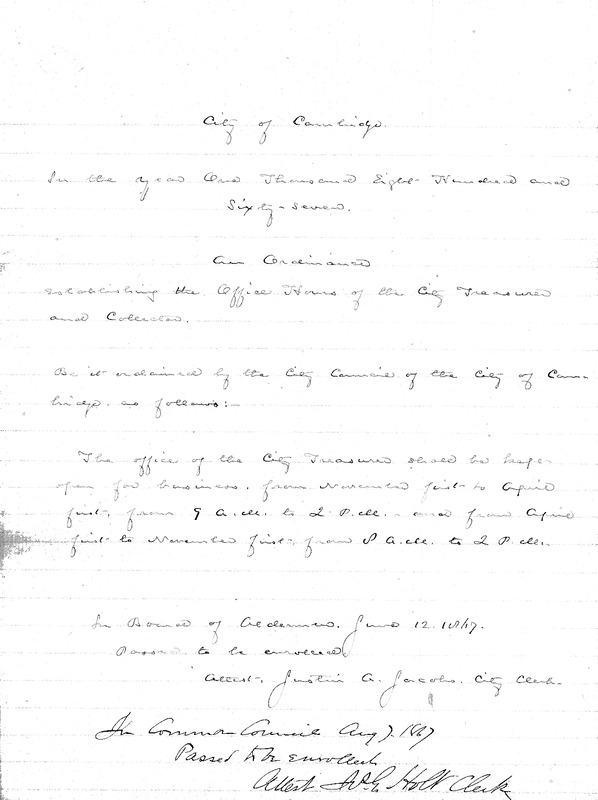 City of Cambridge.
In the year One Thousand Eight Hundred and
Sixty-seven.
An Ordinance
establishing the Office Hours of the City Treasurer
and Collector.
Be it ordained by the City Council of the City of Cam-
bridge, as follows:-
The office of the City Treasurer shall be kept
open for business, from November first to April
first, from 9 A.M. to 2 P.M. - and from April
first to November first, from 8 A.M. to 2 P.M.
In Board of Aldermen. June 12. 1867.
Passed to be enrolled.
Attest. Justin A. Jacobs. City Clerk.
In Common Council Aug 7. 1867
Passed to be enrolled
Attest Holt Clerk